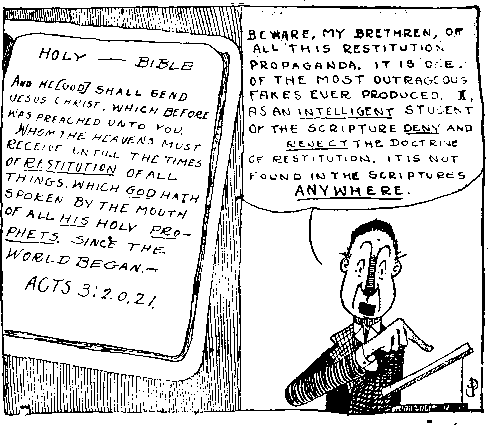 HOLY — BIBLE
AND HE [GOD] SHALL SEND
JESUS CHRIST, WHICH BEFORE
WAS PREACHED UNTO YOU.
WHOM THE HEAVENS MUST
RECEIVE UNTILL THE TIMES
OF RESTITUTION OF ALL
THINGS. WHICH GOD HATH
SPOKEN BY THE MOUTH
OF ALL HIS HOLY PRO-
PHETS. SINCE THE
WORLD BEGAN.—
ACTS 3:20,21.
BEWARE, MY BRETHREN, OF
ALL THIS RESTITUTION
PROPAGANDA. IT IS ONE
OF THE MOST OUTRAGEOUS
FAKES EVER PRODUCED. I,
AS AN INTELLIGENT STUDENT
OF THE SCRIPTURE DENY AND
REJECT THE DOCTRINE
OF RESTITUTION. IT IS NOT
FOUND IN THE SCRIPTURES
ANYWHERE.